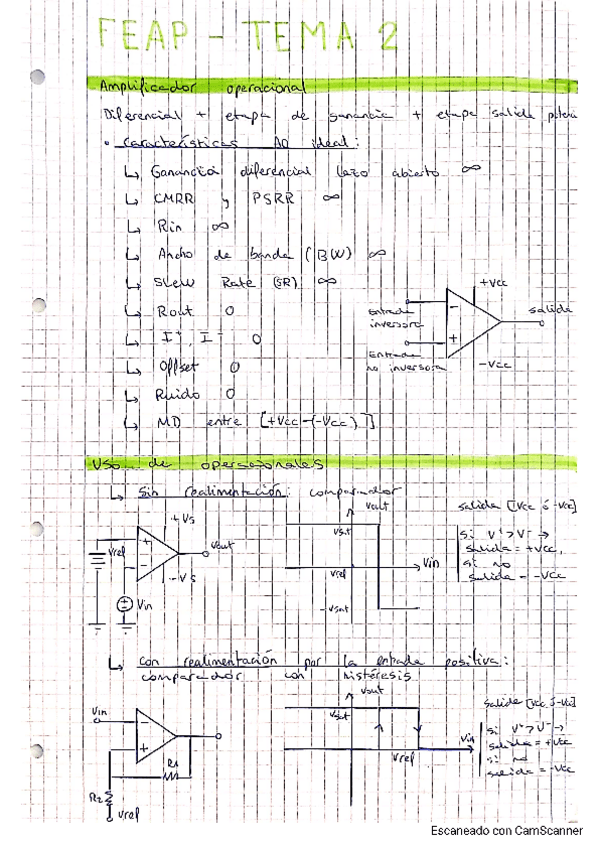 FEAP - TEMA 2
Amplificador operacional
Diferencial + etapa de ganancia + etapa salida
• Características AO ideal:
↳ Ganancia diferencial lazo abierto ∞
↳ CMRR y PSRR ∞
↳ Rin ∞
↳ Ancho de banda (BW) ∞
↳ Slew Rate (SR) ∞
↳ Rout 0
↳ I⁺, I⁻ 0
↳ Offset 0
↳ Ruido 0
↳ MD entre [+Vcc-(-Vcc)]
+Vcc
Entrada
inversora
-
salida
+
Entrada
no inversora
-Vcc
Uso de operacionales
↳ Sin realimentación: comparador
+Vs
Vref
+
-
Vout
-Vs
Vin
Vout
Vsat
Vref
Vin
-Vsat
salida [Vcc ó -Vcc]
si V⁺>V⁻ →
salida = +Vcc,
si no
salida = -Vcc
↳ con realimentación por la entrada positiva:
comparador con histéresis
Vin
-
+
R1
R2
Vref
Vout
Vsat
Vref
Vin
salida [Vcc ó -Vcc]
si V⁺>V⁻ →
salida = +Vcc
si no
salida = -Vcc
Escaneado con CamScanner